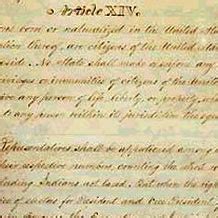 Article XIV.
ons born or naturalized in the United State
iction thereof, are citizens of the United State
eside. No State shall make or enforce any
vileges or immunities of citizens of the Unite
ive any person of life, liberty, or property, wit
to any person within its jurisdiction the equ
Representatives shall be apportioned among
their respective numbers, counting the whol
luding Indians not taxed. But when the righ
of electors for President and Vice President
the